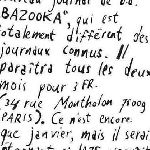 journal de b.d.
"BAZOOKA", qui est
totalement différent des
journaux connus. Il
paraîtra tous les deux
mois pour 3 FR.
(34 rue Montholon 75009
PARIS). Ce n'est encore
que janvier, mais il serait